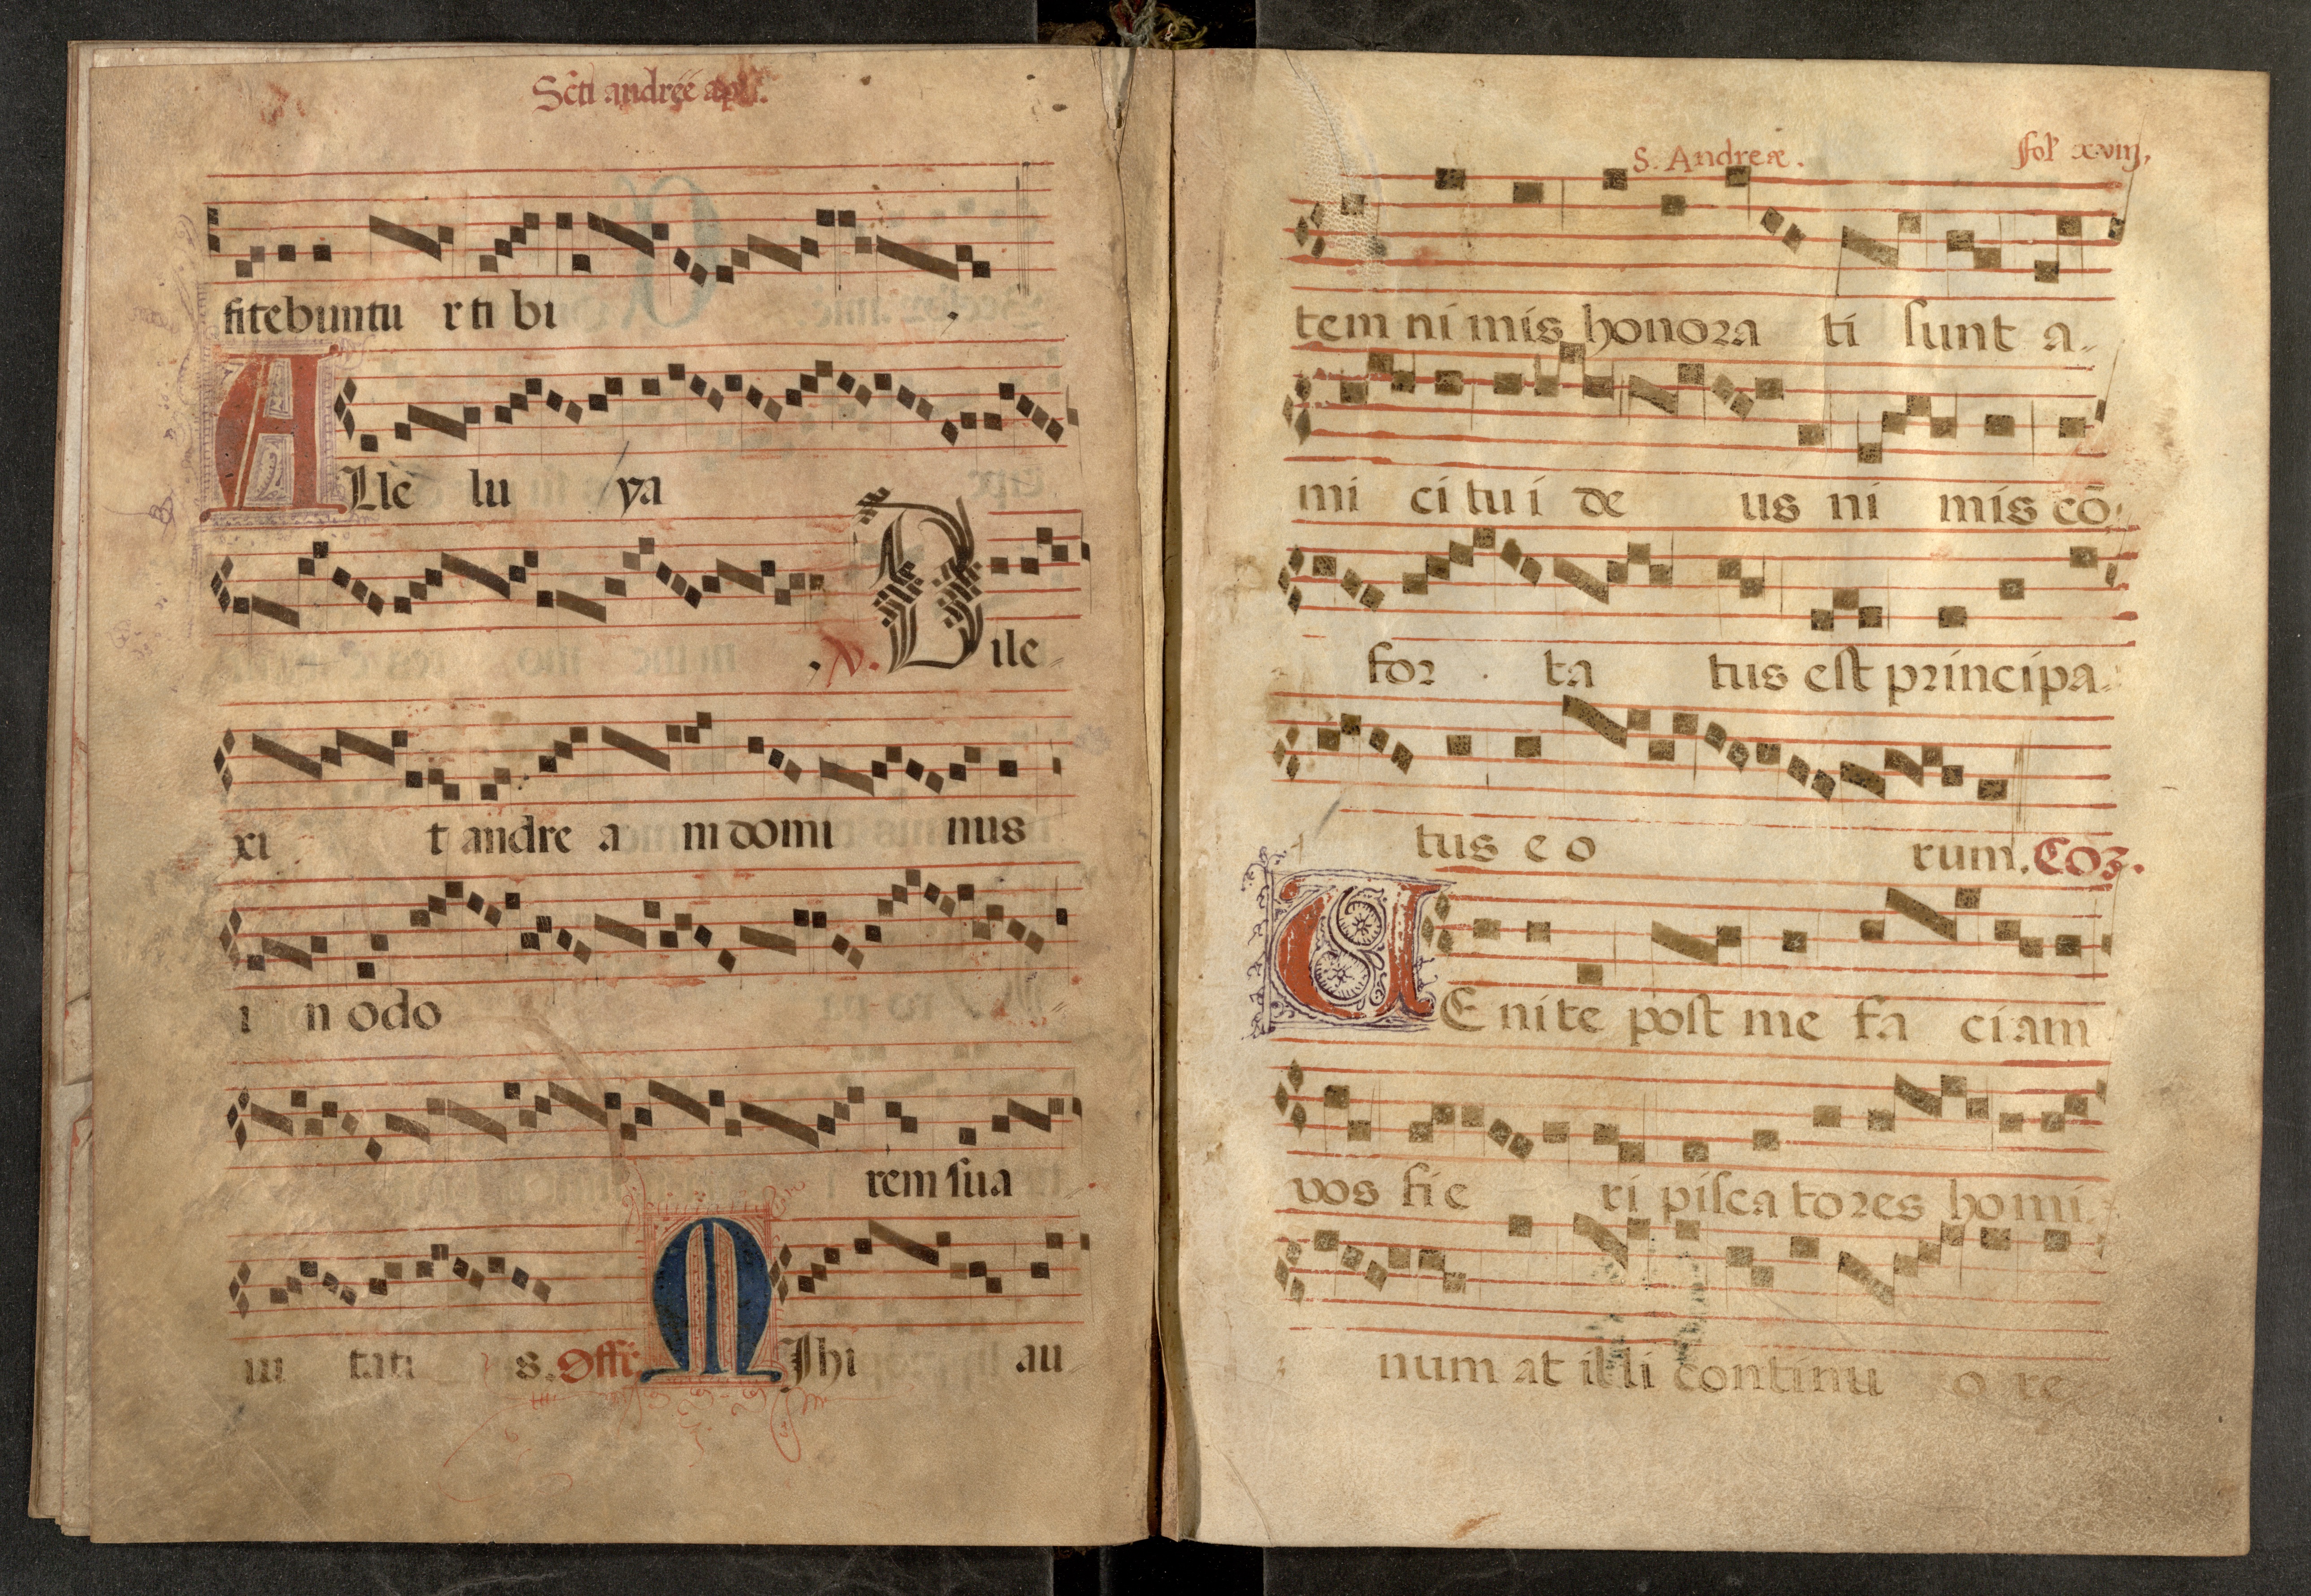 Scti andreę apli.
fitebuntu r ti bi
A Lle lu ya
V. Dile
xi t andre a m domi nus
i n odo
rem sua
ui tati s. Offr M Ihi au
S. Andreæ. fol xviij,
tem ni mis honora ti sunt a
mi ci tu i de us ni mis cō
for ta tus est principa
tus e o rum. Co3.
U E nite post me fa ciam
vos fie ri piscatores homi
num at illi continu o re